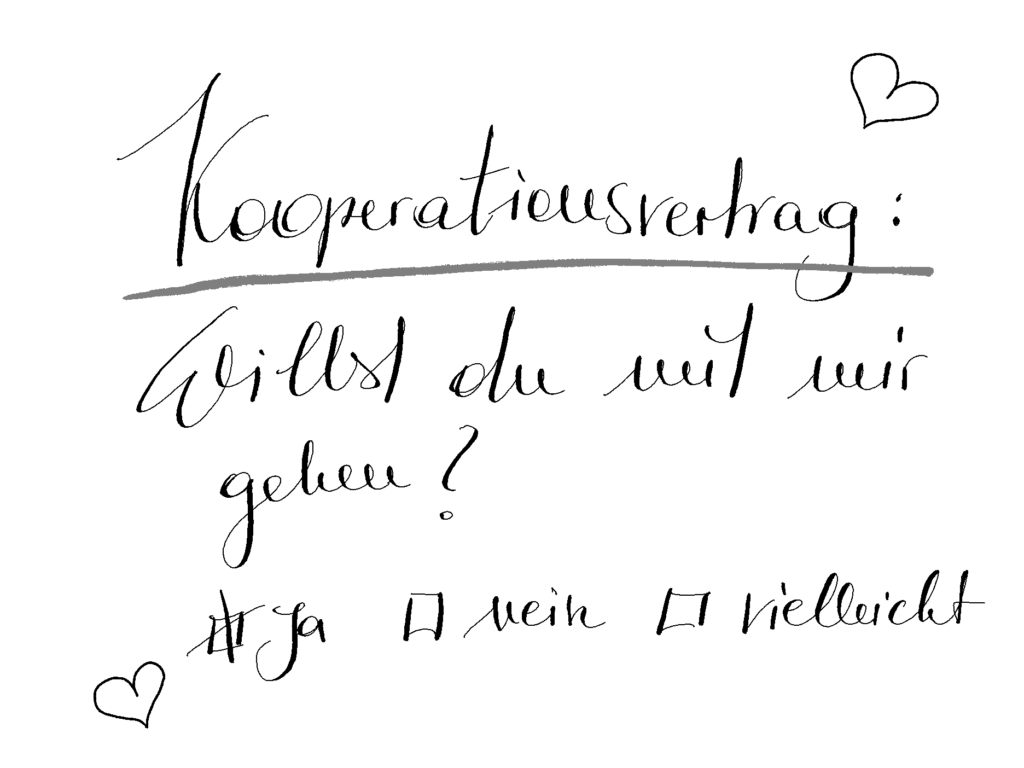 Kooperationsvertrag:
Willst du mit mir
gehen?
☒ Ja ☐ nein ☐ vielleicht